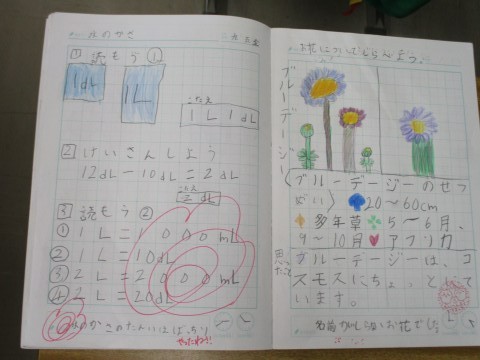 水のかさ
1 読もう ①
1dL
1L
こたえ
1L1dL
2 けいさんしよう
12dL－10dL＝2dL
こたえ
2dL
3 読もう ②
① 1L＝1000mL
② 1L＝10dL
③ 2L＝2000mL
④ 2L＝20dL
水のかさのたんいはばっちり
やったね!!
ブルーデージー
ブルーデージーのせつ
20～60cm
多年草 5～6月、
9～10月 アフリカ
思ったこと
ブルーデージーは、コ
スモスにちょっとにて
います。